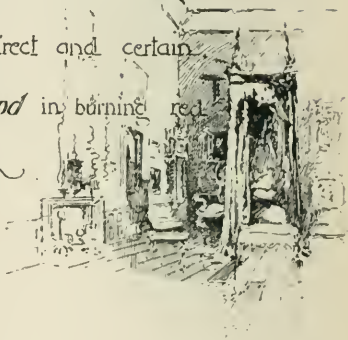 rect and certain
nd in burning red